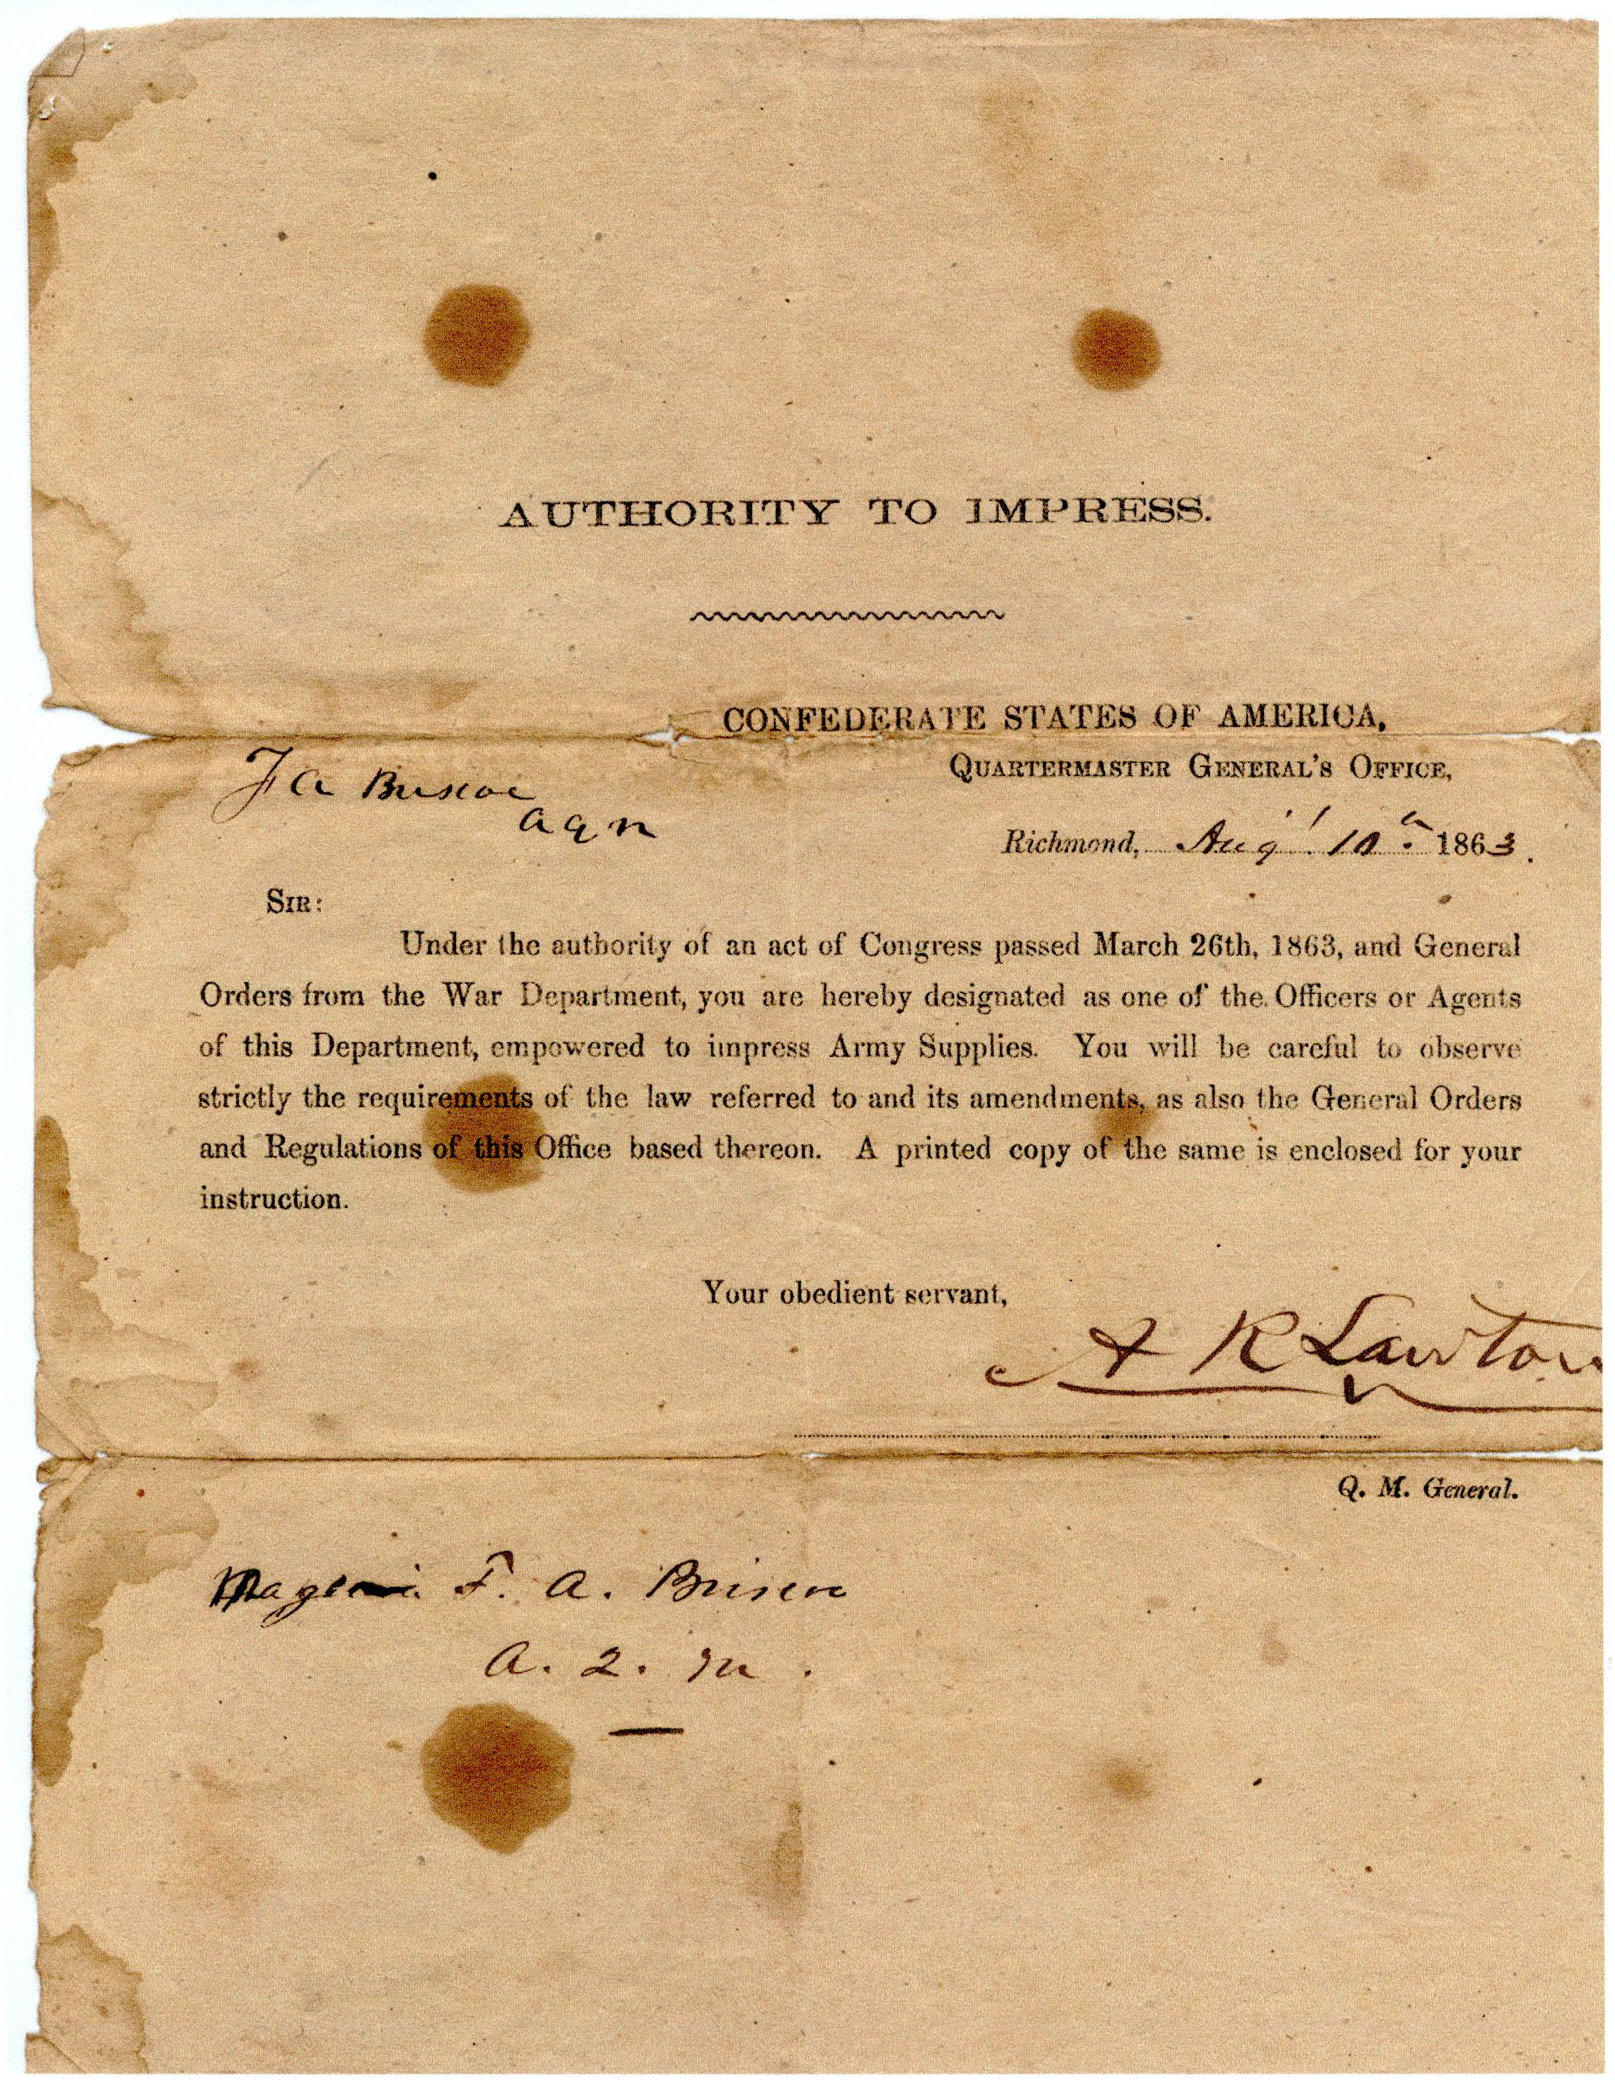 AUTHORITY TO IMPRESS.
CONFEDERATE STATES OF AMERICA,
QUARTERMASTER GENERAL'S OFFICE,
F A Briscoe
A Q M
Richmond, Aug 10th 1863.
SIR:
Under the authority of an act of Congress passed March 26th, 1863, and General
Orders from the War Department, you are hereby designated as one of the Officers or Agents
of this Department, empowered to impress Army Supplies. You will be careful to observe
strictly the requirements of the law referred to and its amendments, as also the General Orders
and Regulations of this Office based thereon. A printed copy of the same is enclosed for your
instruction.
Your obedient servant,
A R Lawton
Q. M. General.
F. A. Briscoe
A. Q. M.